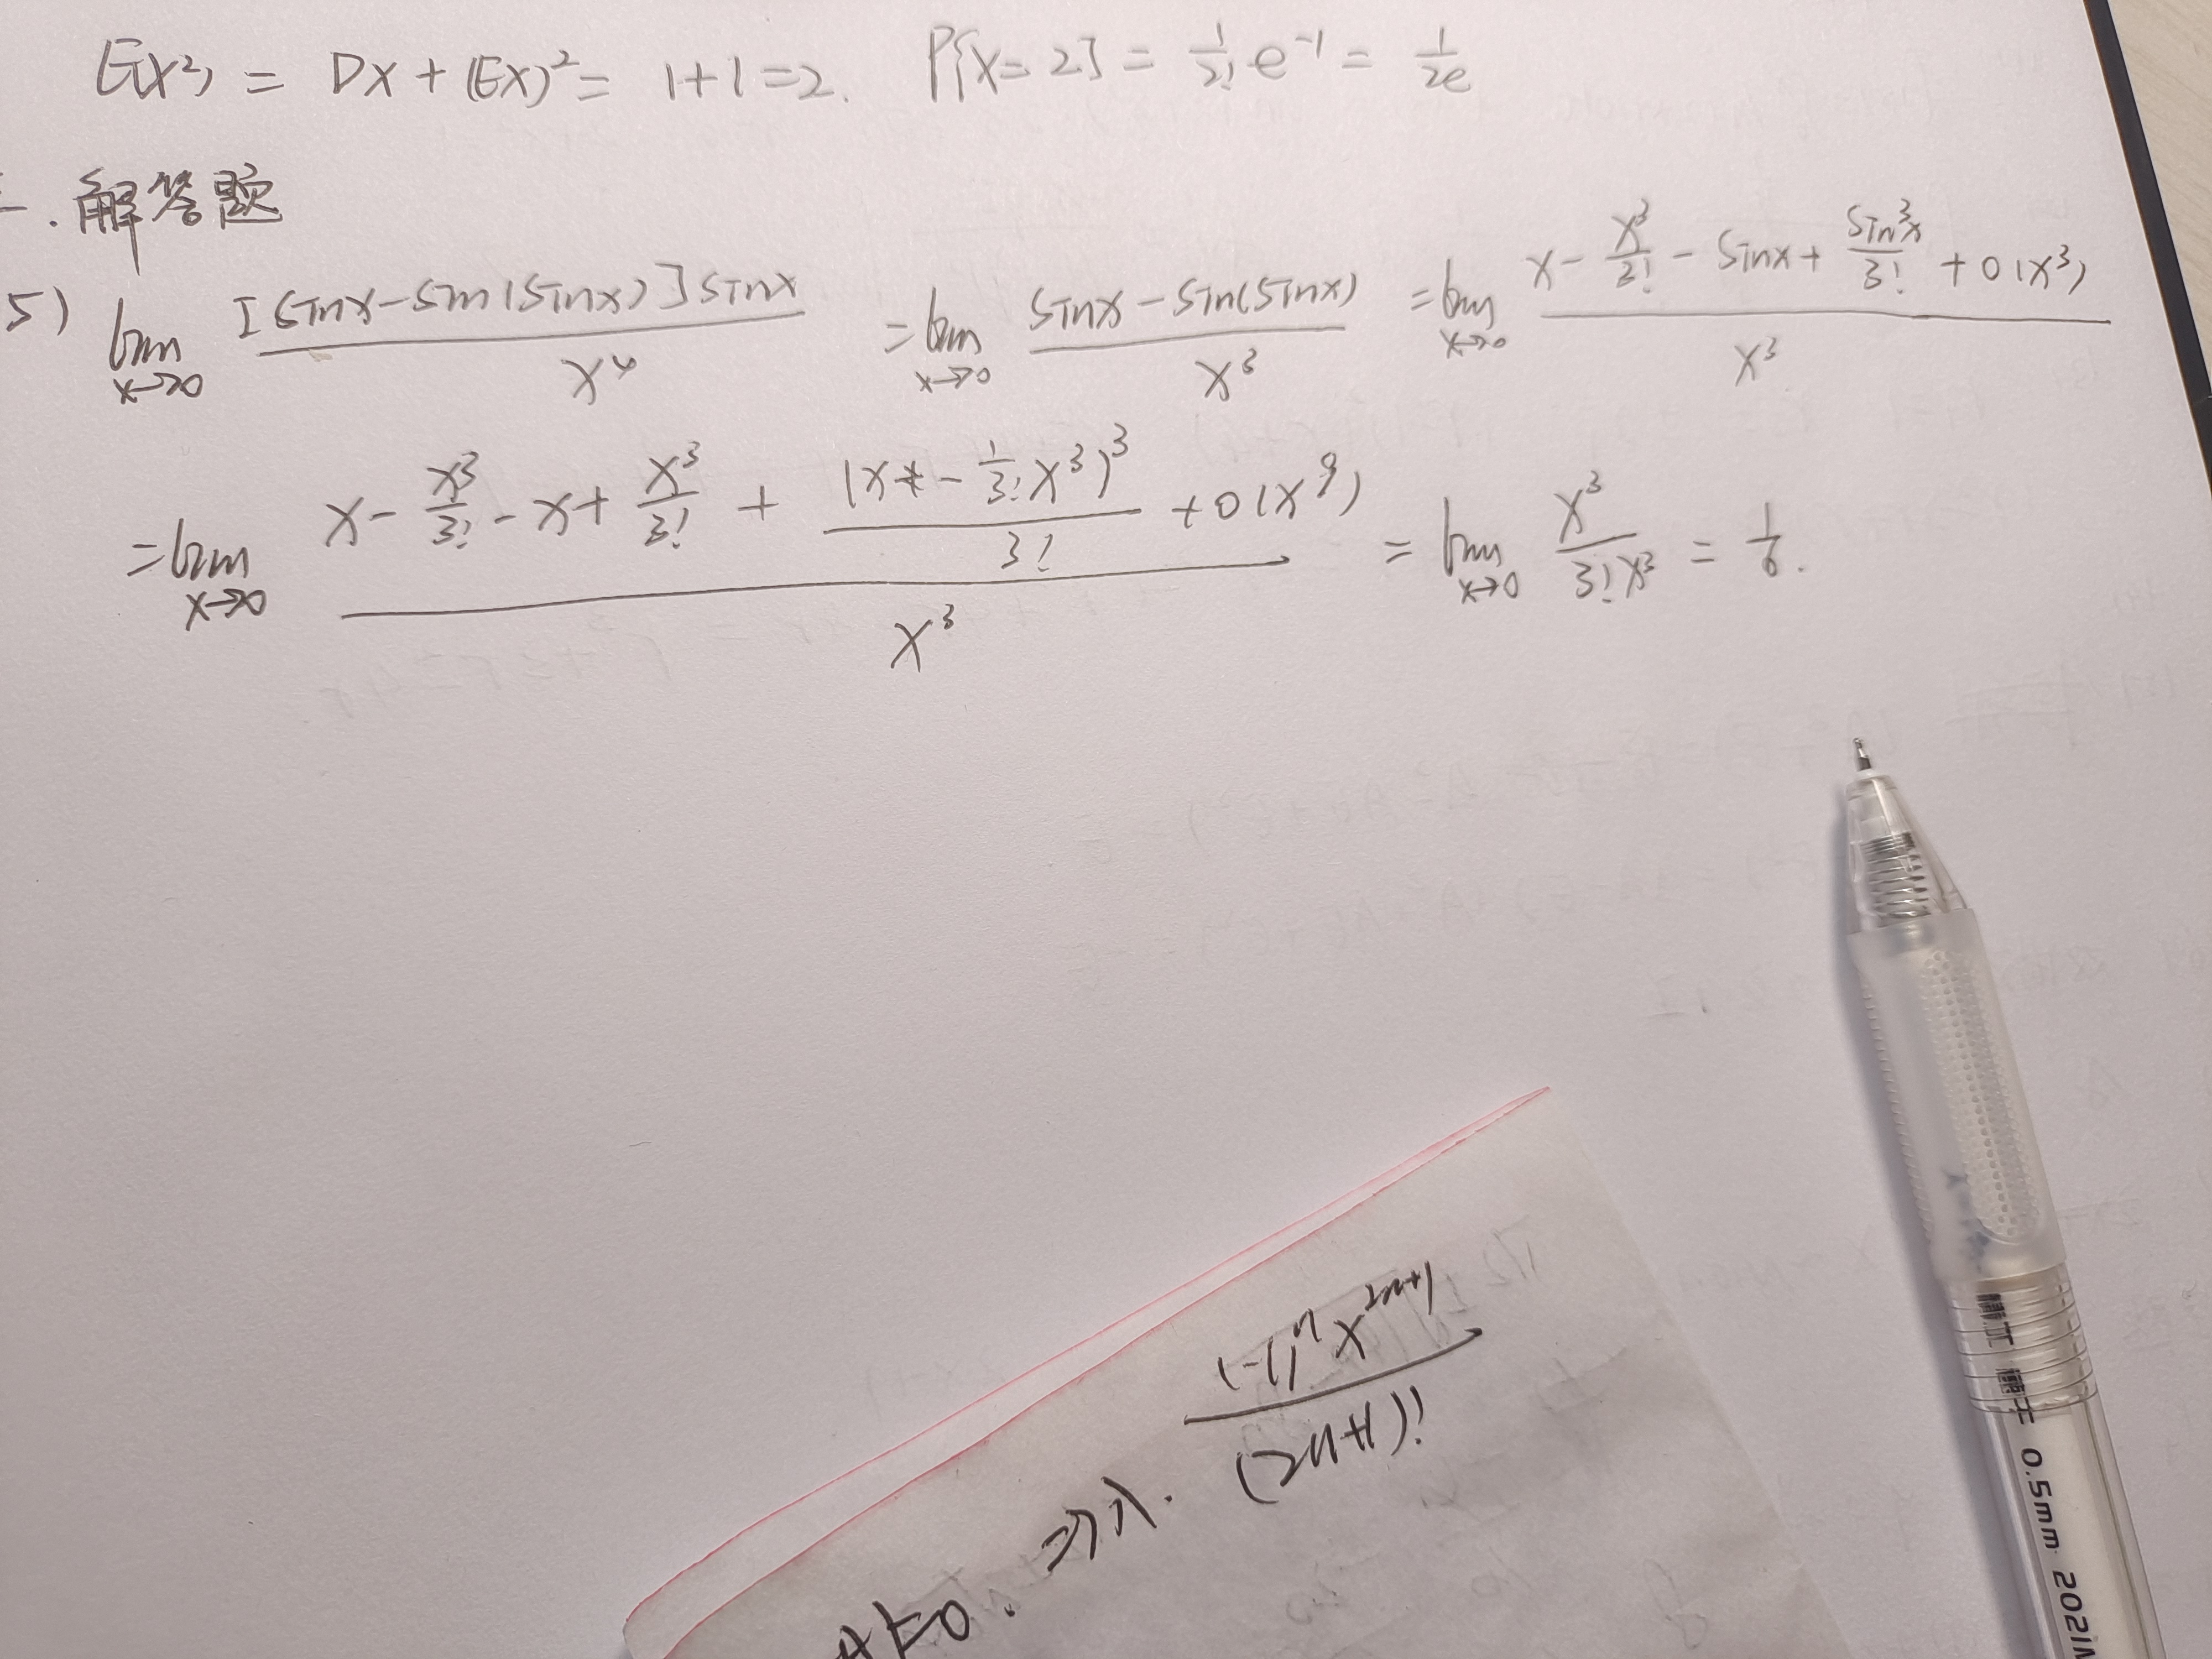 E(X²) = DX + (EX)² = 1+1=2. P{X=2} = \frac{1}{2!} e^{-1} = \frac{1}{2e}
. 解答题
5) \lim_{x→0} \frac{[sinx-sin(sinx)]sinx}{x^4} = \lim_{x→0} \frac{sinx-sin(sinx)}{x^3} = \lim_{x→0} \frac{x-\frac{x^3}{3!}-sinx+\frac{sin^3x}{3!}+o(x^3)}{x^3}
= \lim_{x→0} \frac{x-\frac{x^3}{3!}-x+\frac{x^3}{3!}+\frac{(x-\frac{1}{3!}x^3)^3}{3!}+o(x^9)}{x^3} = \lim_{x→0} \frac{x^3}{3!x^3} = \frac{1}{6}.
\frac{(-1)^n x^{2n+1}}{(2n+1)!}
0.5mm 2021